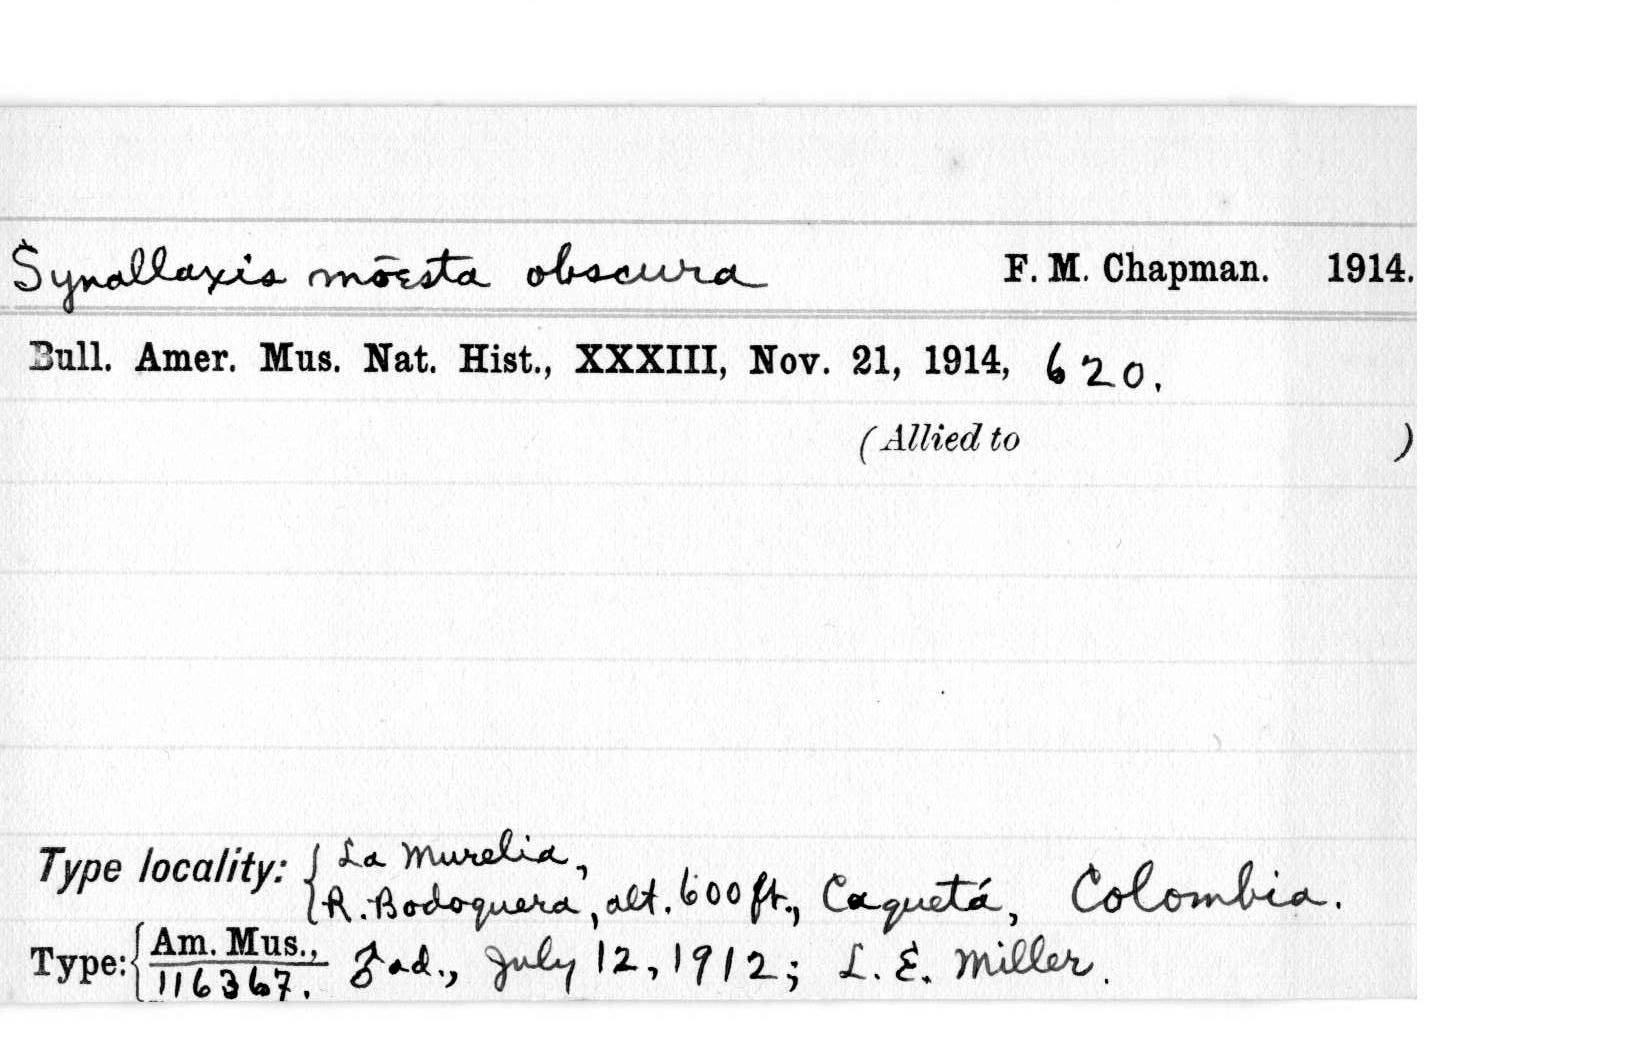 Synallaxis mœsta obscura F. M. Chapman. 1914.
Bull. Amer. Mus. Nat. Hist., XXXIII, Nov. 21, 1914, 620.
(Allied to )
Type locality: { La Murelia,
R. Bodoquera, alt. 600 ft., Caquetá, Colombia.
Type: { Am. Mus.,
116367. ♂ ad., July 12, 1912; L. E. Miller.